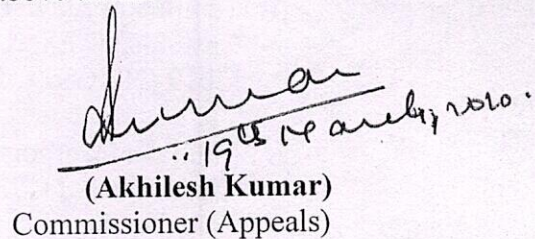 Akumar
19th March, 2020.
(Akhilesh Kumar)
Commissioner (Appeals)